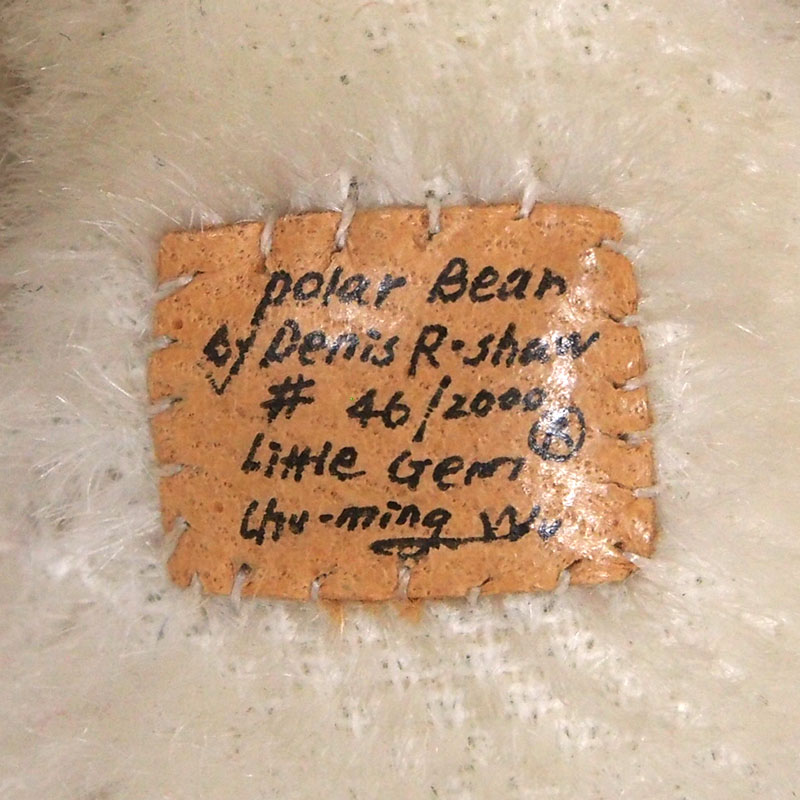 polar Bear
by Denis R-shaw
# 46/2000
Little Gem ®
Chu-ming Wu